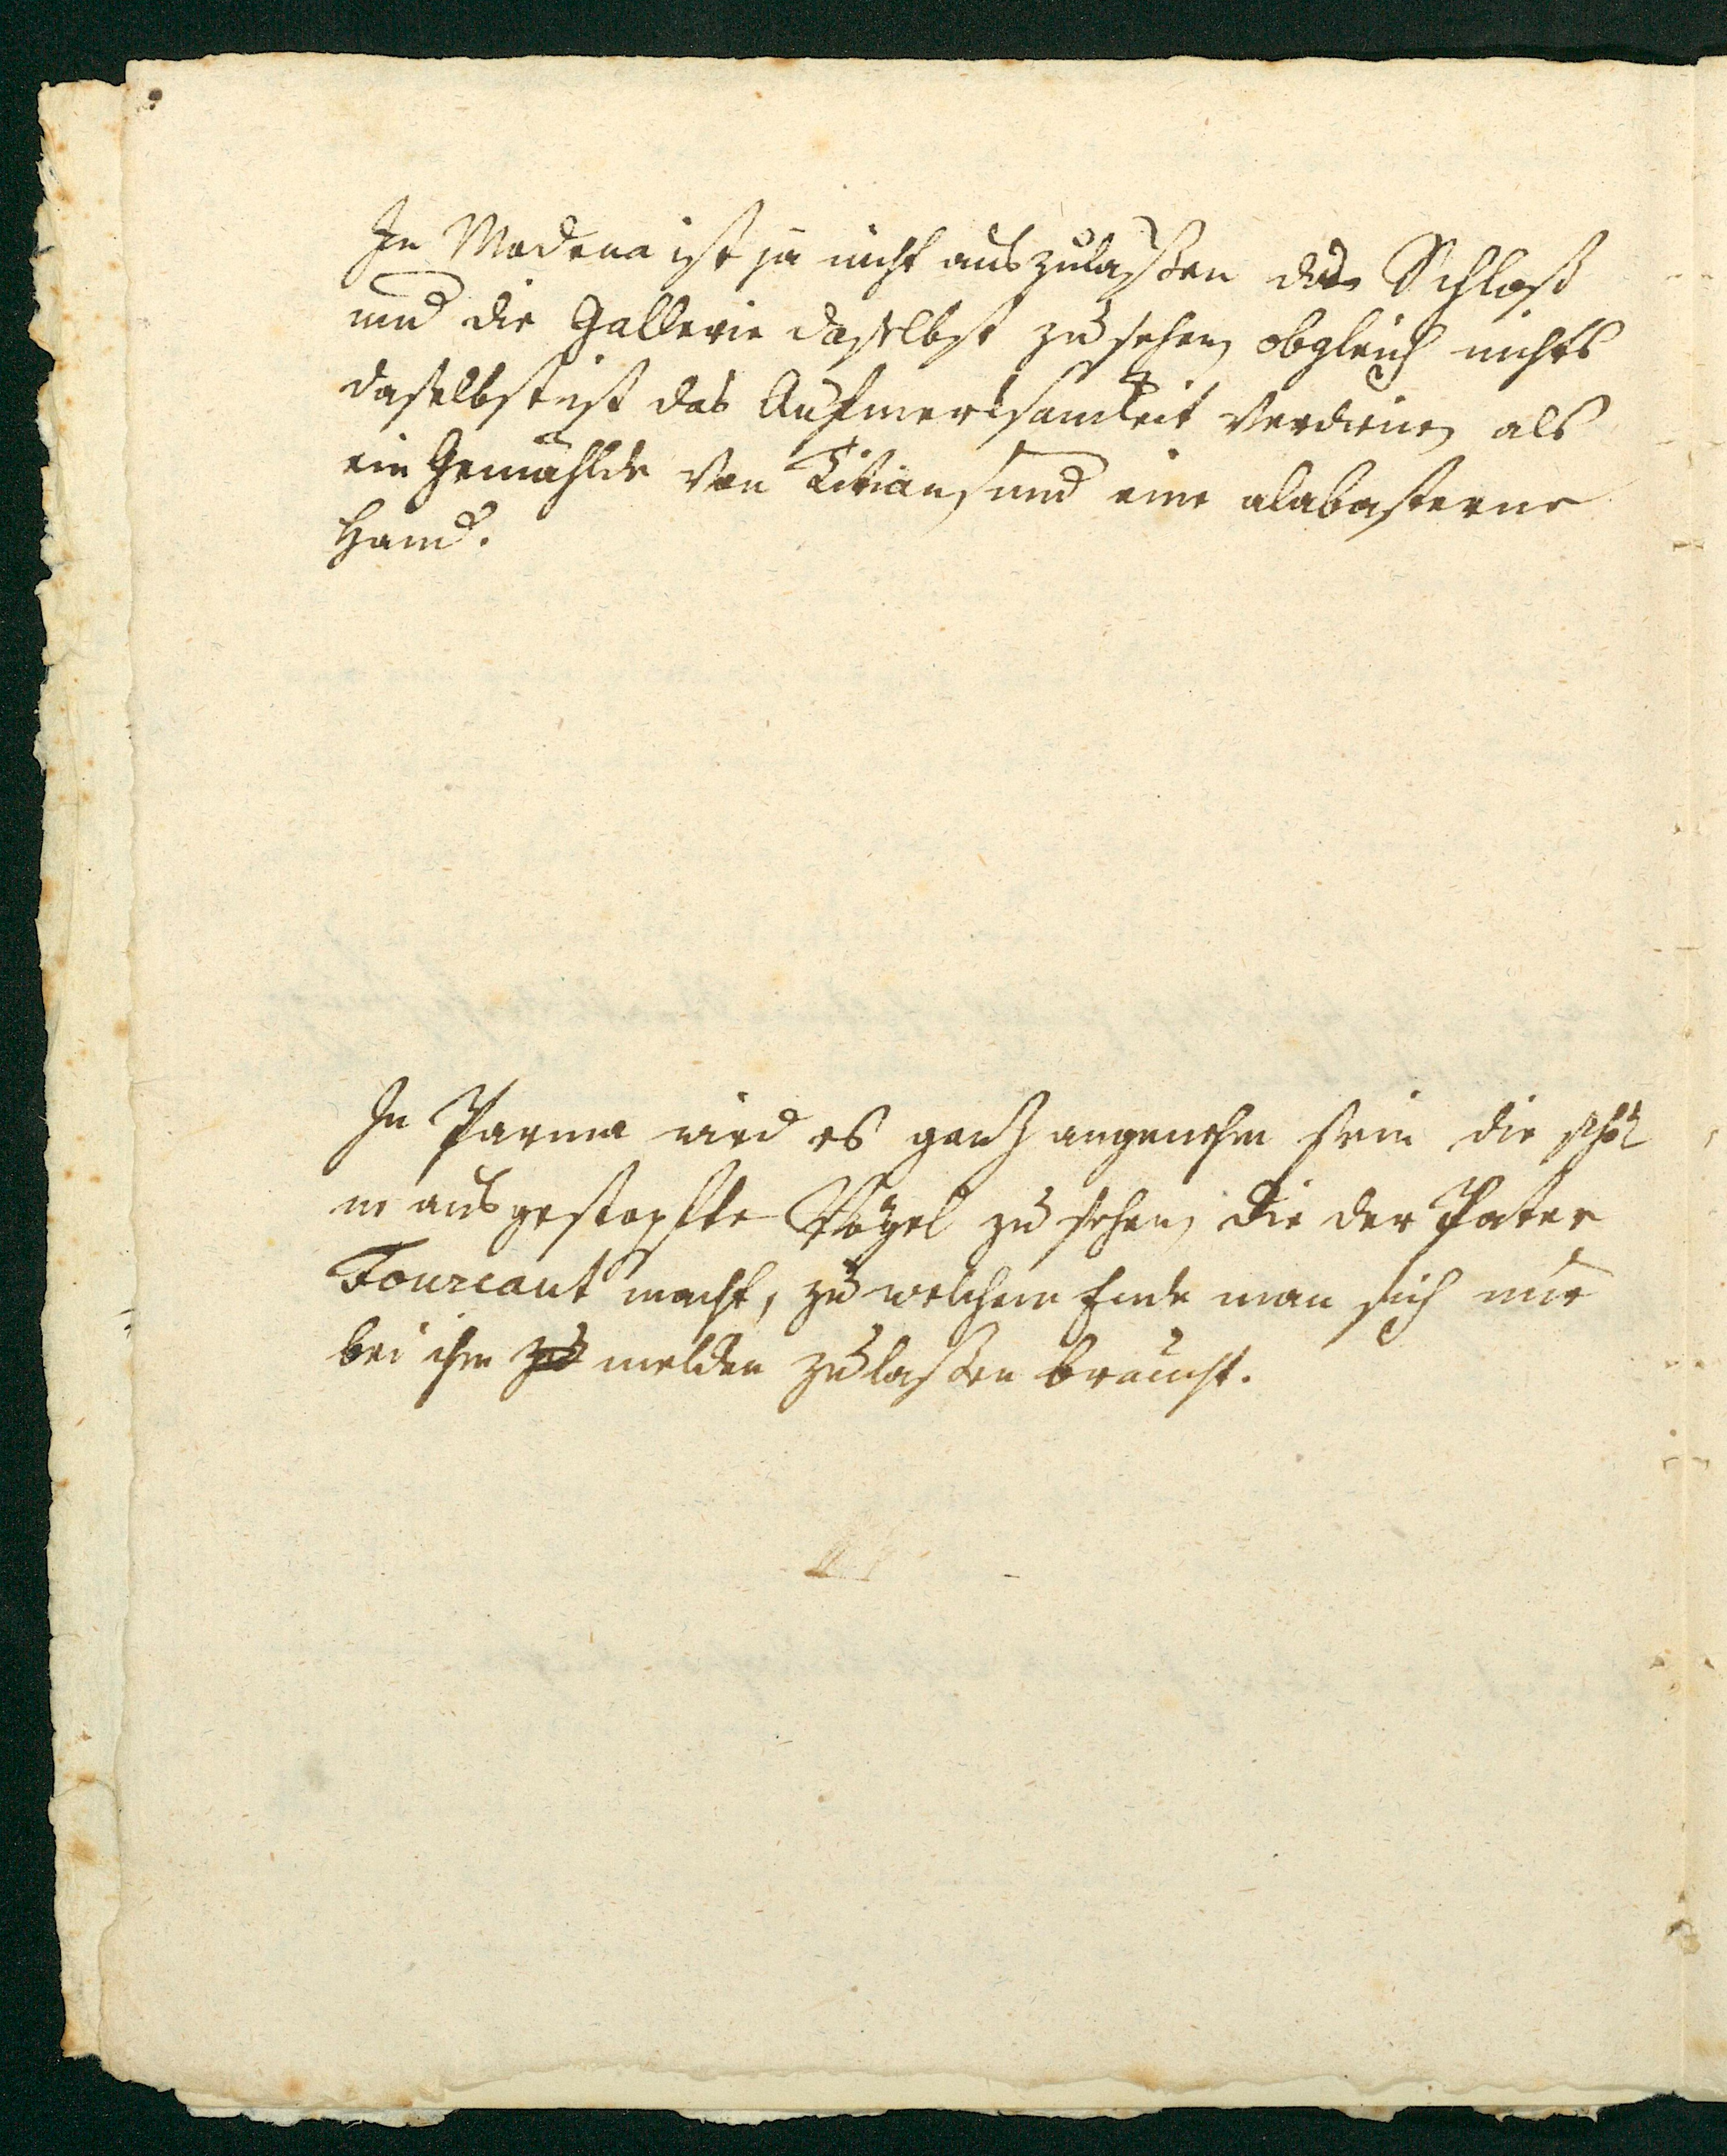 In Modena ist ja nicht auszulaßen das Schloß
und die Gallerie daselbst zu sehen obgleich nichts
daselbst ist das Aufmerksamkeit verdienen als
ein Gemählde von Titian und eine alabasterne
Hand.
In Parma wird es gantz angenehm sein die schö-
ne ausgestopfte Vögel zu sehen, die der Pater
Fourcaut macht, zu welchem Ende man sich nur
bei ihm zu melden zu laßen braucht.